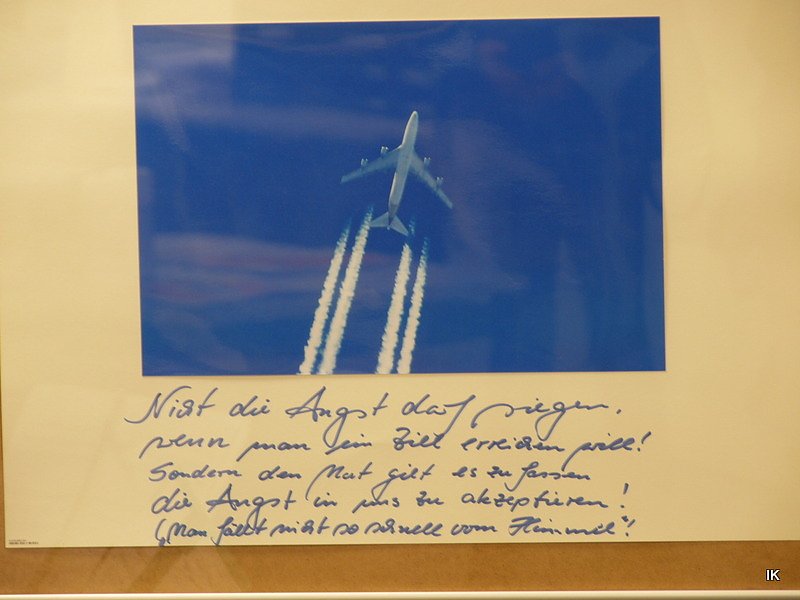 Nicht die Angst darf siegen,
wenn man sein Ziel erreichen will!
Sondern den Mut gilt es zu fassen
die Angst in uns zu akzeptieren!
(„Man fällt nicht so schnell vom Himmel“!
IK